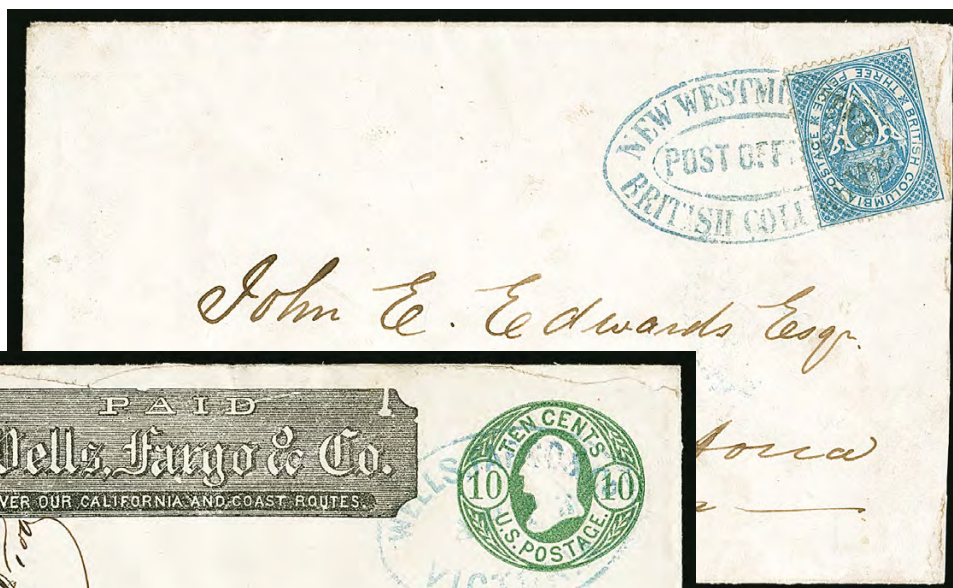 NEW WESTMI
POST OFF
BRITISH COLU
BRITISH COLUMBIA POSTAGE & THREE PENCE &
John E. Edwards Esqr.
PAID
Wells, Fargo & Co.
VER OUR CALIFORNIA AND COAST ROUTES.
WELLS
VICTO
TEN CENTS
10 10
U.S. POSTAGE.